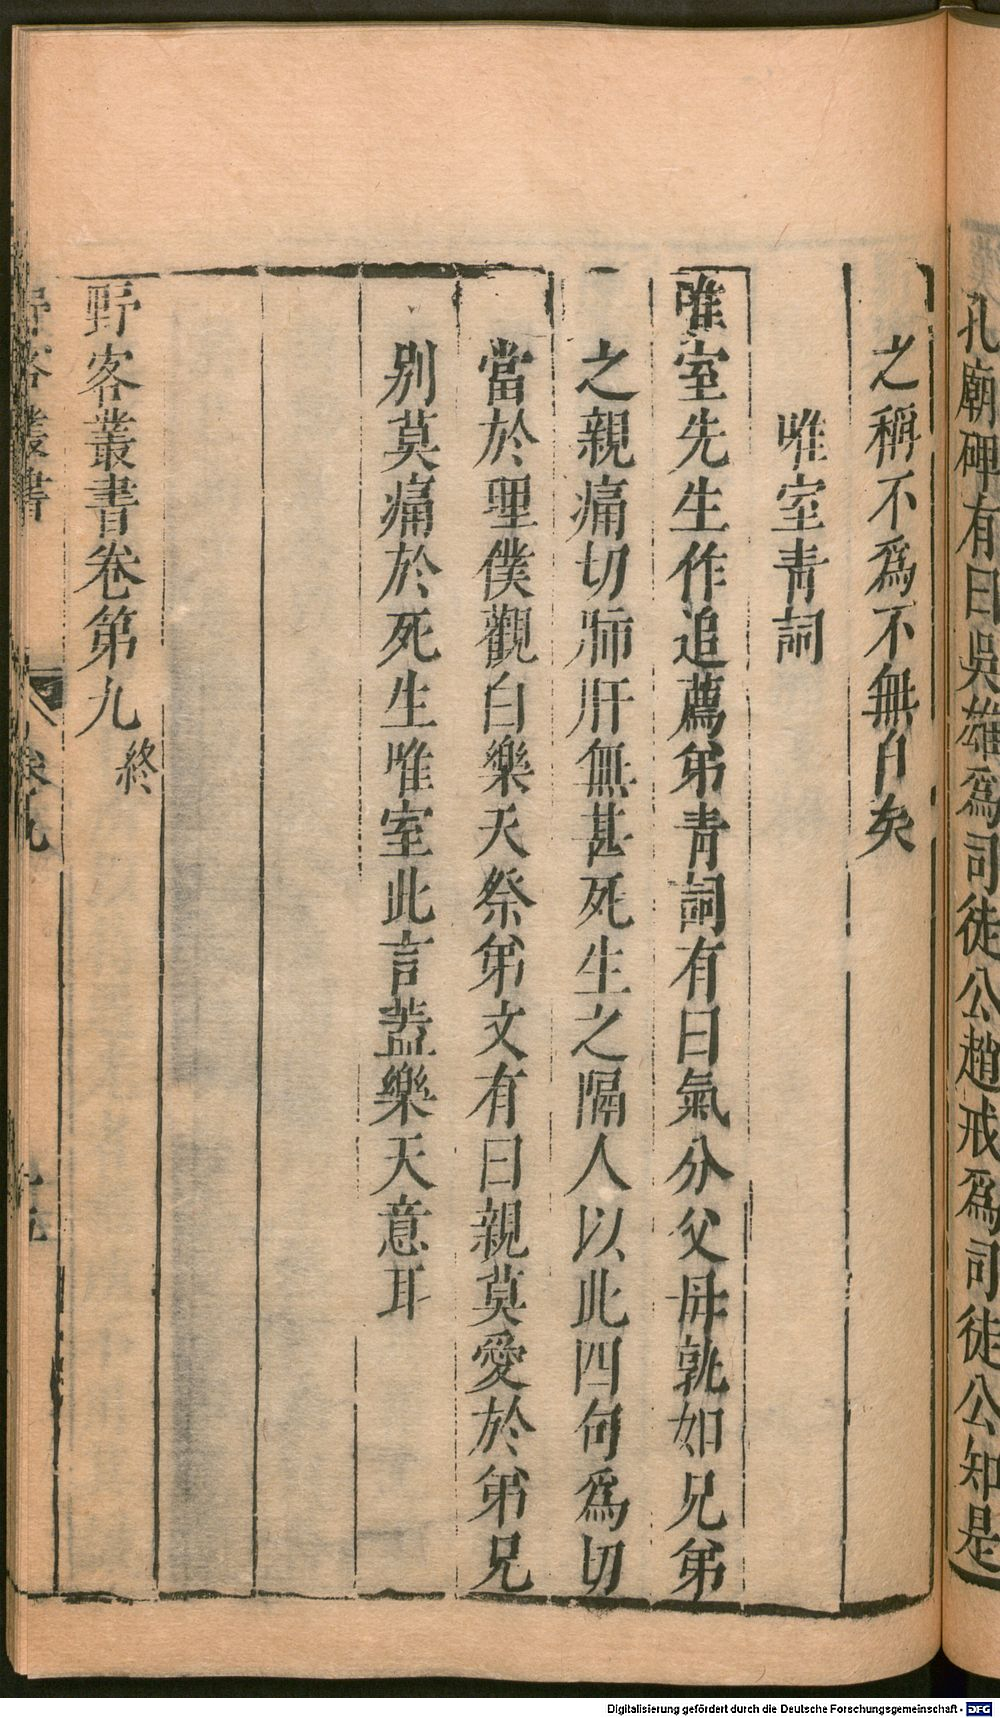 孔廟碑有曰吳雄爲司徒公趙戒爲司徒公知是
之稱不爲不無自矣
唯室青詞
唯室先生作追薦弟青詞有曰氣分父母孰如兄弟
之親痛切肺肝無甚死生之隔人以此四句爲切
當於理僕觀白樂天祭弟文有曰親莫愛於弟兄
别莫痛於死生唯室此言葢樂天意耳
野客叢書卷第九終
野客叢書 卷九
Digitalisierung gefördert durch die Deutsche Forschungsgemeinschaft - DFG